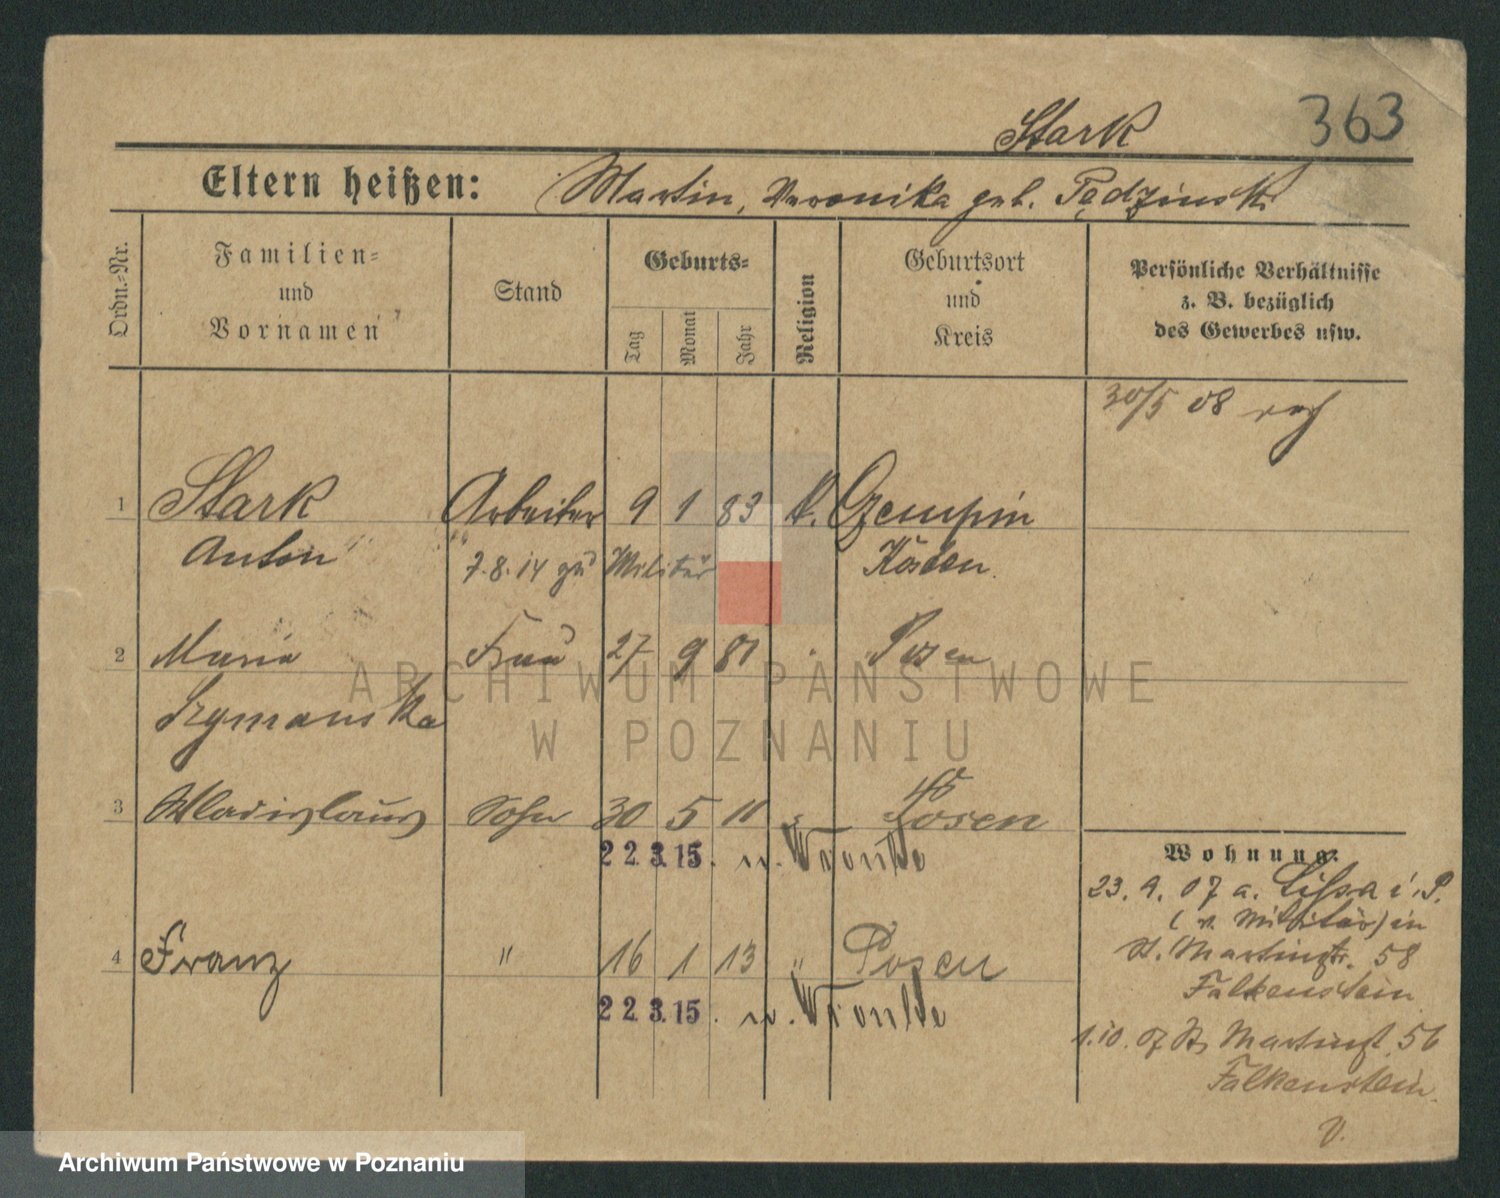 363
Stark
Eltern heißen: Martin, Veronika geb. Pędzinski
Ordn.-Nr.
Familien-
und
Vornamen
Stand
Geburts-
Tag
Monat
Jahr
Religion
Geburtsort
und
Kreis
Persönliche Verhältnisse
z. B. bezüglich
des Gewerbes usw.
30/5 08
1 Stark Arbeiter 9 1 83 k. Czempin
Anton 7.8.14 zu Militär Kosten
2 Maria Frau 27 9 81 Posen
Szymanska
3 Wladislaus Sohn 30 5 11 Posen
22.3.15. n. Wronke
4 Franz " 16 1 13 " Posen
22.3.15. n. Wronke
Wohnung:
23.9.07 a. Lissa i. P.
(v. Militär) in
St. Martinstr. 58
Falkenstein
1.10.07 St. Martinst. 56
Falkenstein.
V.
ARCHIWUM PAŃSTWOWE
W POZNANIU
Archiwum Państwowe w Poznaniu